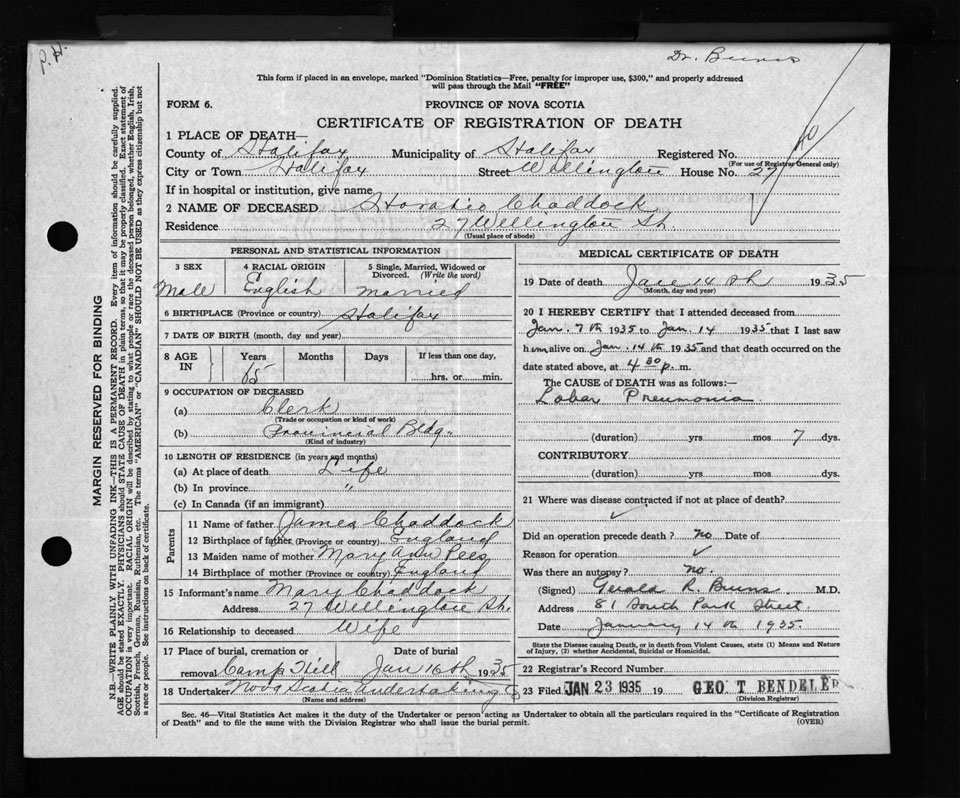 P.H.
Dr. Burns
This form if placed in an envelope, marked "Dominion Statistics—Free, penalty for improper use, $300," and properly addressed
will pass through the Mail "FREE"
FORM 6.
PROVINCE OF NOVA SCOTIA
CERTIFICATE OF REGISTRATION OF DEATH
1 PLACE OF DEATH—
County of Halifax Municipality of Halifax Registered No.
(For use of Registrar General only)
City or Town Halifax Street Wellington House No. 27
If in hospital or institution, give name
2 NAME OF DECEASED Horatio Chaddock
Residence 27 Wellington St.
(Usual place of abode)
PERSONAL AND STATISTICAL INFORMATION
3 SEX 4 RACIAL ORIGIN 5 Single, Married, Widowed or Divorced. (Write the word)
Male English married
6 BIRTHPLACE (Province or country) Halifax
7 DATE OF BIRTH (month, day and year)
8 AGE IN Years Months Days If less than one day,
65 hrs. or min.
9 OCCUPATION OF DECEASED
(a) Clerk
(Trade or occupation or kind of work)
(b) Provincial Bldg.
(Kind of industry)
10 LENGTH OF RESIDENCE (in years and months)
(a) At place of death Life
(b) In province "
(c) In Canada (if an immigrant)
Parents
11 Name of father James Chaddock
12 Birthplace of father (Province or country) England
13 Maiden name of mother Mary Ann Pees
14 Birthplace of mother (Province or country) England
15 Informant's name Mary Chaddock
Address 27 Wellington St.
16 Relationship to deceased Wife
17 Place of burial, cremation or removal Date of burial
Camp Hill Jan 16th 1935
18 Undertaker Nova Scotia Undertaking Co
(Name and address)
MEDICAL CERTIFICATE OF DEATH
19 Date of death Jan 14th 1935
(Month, day and year)
20 I HEREBY CERTIFY that I attended deceased from
Jan. 7th 1935 to Jan. 14 1935 that I last saw
him alive on Jan. 14th 1935 and that death occurred on the
date stated above, at 4 30 p. m.
The CAUSE of DEATH was as follows:—
Lobar Pneumonia
(duration) yrs mos 7 dys.
CONTRIBUTORY
(duration) yrs mos dys.
21 Where was disease contracted if not at place of death?
Did an operation precede death? no Date of
Reason for operation
Was there an autopsy? no.
(Signed) Gerald R. Burns M.D.
Address 81 South Park Street.
Date January 14th 1935.
State the Disease causing Death, or in Death from Violent Causes, state (1) Means and Nature
of Injury, (2) whether Accidental, Suicidal or Homicidal.
22 Registrar's Record Number
23 Filed JAN 23 1935 19 GEO T BENDELER
(Division Registrar)
Sec. 46—Vital Statistics Act makes it the duty of the Undertaker or person acting as Undertaker to obtain all the particulars required in the "Certificate of Registration
of Death" and to file the same with the Division Registrar who shall issue the burial permit. (OVER)
MARGIN RESERVED FOR BINDING
N.B.—WRITE PLAINLY WITH UNFADING INK—THIS IS A PERMANENT RECORD. Every item of information should be carefully supplied.
AGE should be stated EXACTLY. PHYSICIANS should STATE CAUSE OF DEATH in plain terms, so that it may be properly classified. Exact statement of
OCCUPATION is very important. RACIAL ORIGIN will be described by stating to what people or race the deceased person belonged, whether English, Irish,
Scottish, French, German, Russian, Ruthenian, etc. The terms "AMERICAN" or "CANADIAN" SHOULD NOT BE USED as they express citizenship but not
a race or people. See instructions on back of certificate.